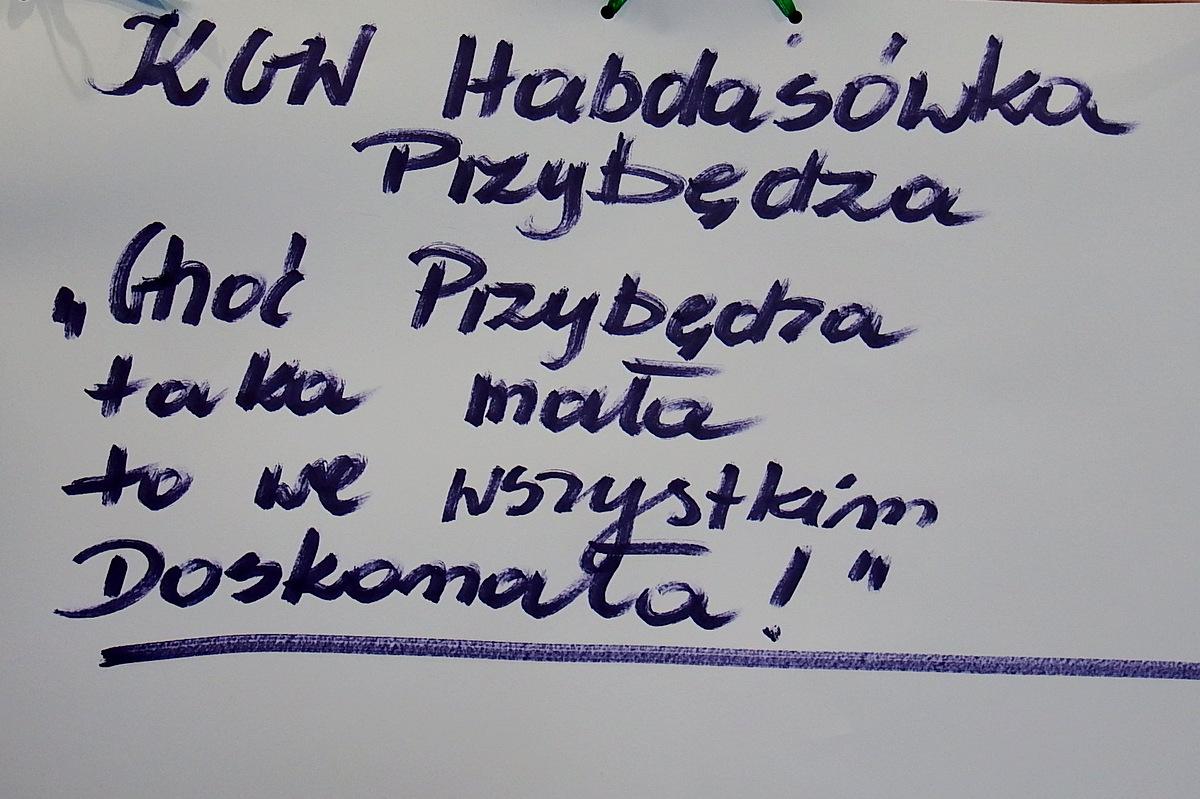 KGW Habdasówka
Przybędza
„Choć Przybędza
taka mała
to we wszystkim
Doskonała!"